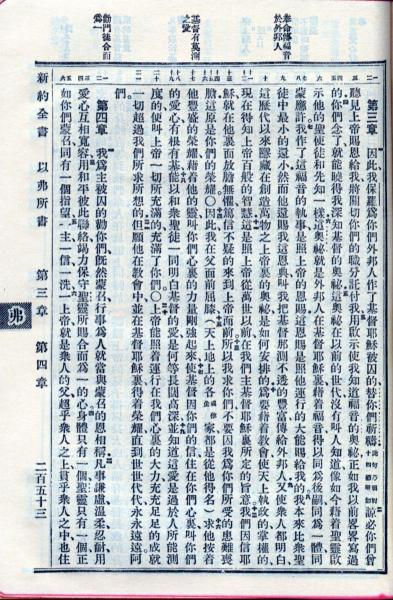 奉命傳福音
於外邦人
基督有莫測
之愛
勸門徒合而
爲一
第三章 因此我保羅爲你們外邦人作了基督耶穌被囚的替你們祈禱諒必你們曾
聽見上帝賜恩給我將關切你們的職分託付我用默示使我知道福音的奧祕正如我以前畧畧寫過
的你們念了就能曉得我深知基督的奧祕這奧祕在以前的世代沒有叫人知道像如今藉着聖靈啟
示他的聖使徒和先知一樣這奧祕就是外邦人在基督耶穌裏藉着福音得以同爲後嗣同爲一體同
蒙應許我作了這福音的執事是照上帝的恩賜這恩賜是照他運行的大能賜給我的我本來比衆聖
徒中最小的還小然而他還賜我這恩典叫我把基督那測不透的豐富傳給外邦人又使衆人都明白
這歷代以來隱藏在創造萬物之上帝裏的奧祕是如何安排的爲要藉着教會使天上執政的掌權的
現在得知上帝百般的智慧這是照上帝從萬世以前在我們主基督耶穌裏所定的旨意我們因信耶
穌就在他裏面放膽無懼篤信不疑的來到上帝面前所以我求你們不要因我爲你們所受的患難喪
膽這原是你們的榮耀○因此我在父面前屈膝(天上地上的各家都是從他得名)求他按着
他豐盛的榮耀藉着他的靈叫你們心裏的力量剛強起來使基督因你們的信住在你們心裏叫你們
的愛心有根有基能以和衆聖徒一同明白基督的愛是何等長闊高深並知道這愛是過於人所能測
度的便叫上帝一切所充滿的充滿了你們○上帝能照着運行在我們心裏的大力充充足足的成就
一切超過我們所求所想的但願他在教會中並在基督耶穌裏得着榮耀直到世世代代永永遠遠阿
們
第四章 我爲主被囚的勸你們既然蒙召行事爲人就當與蒙召的恩相稱凡事謙虛溫柔忍耐用
愛心互相寬容用和平彼此聯絡竭力保守聖靈所賜合而爲一的心身體只有一個聖靈只有一個正
如你們蒙召同有一個指望一主一信一洗一上帝就是衆人的父超乎衆人之上貫乎衆人之中也住
新約全書 以弗所書 第三章 第四章 二百五十三
弗